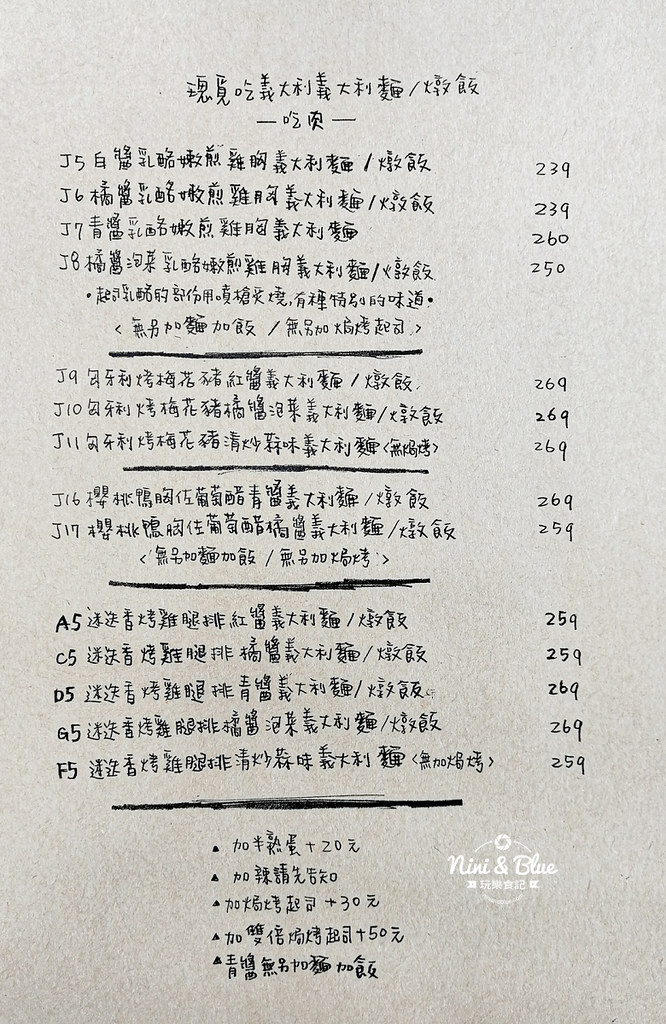 璁覓吃義大利義大利麵/燉飯
—吃肉—
J5白醬乳酪嫩煎雞胸義大利麵/燉飯 239
J6橘醬乳酪嫩煎雞胸義大利麵/燉飯 239
J7青醬乳酪嫩煎雞胸義大利麵 260
J8橘醬泡菜乳酪嫩煎雞胸義大利麵/燉飯 250
•起司乳酪的部份用噴槍炙燒,有種特別的味道•
<無另加麵加飯/無另加焗烤起司>
J9匈牙利烤梅花豬紅醬義大利麵/燉飯 269
J10匈牙利烤梅花豬橘醬泡菜義大利麵/燉飯 269
J11匈牙利烤梅花豬清炒蒜味義大利麵<無焗烤> 269
J16櫻桃鴨胸佐葡萄醋青醬義大利麵/燉飯 269
J17櫻桃鴨胸佐葡萄醋橘醬義大利麵/燉飯 259
<無另加麵加飯/無另加焗烤>
A5迷迭香烤雞腿排紅醬義大利麵/燉飯 259
C5迷迭香烤雞腿排橘醬義大利麵/燉飯 259
D5迷迭香烤雞腿排青醬義大利麵/燉飯 269
G5迷迭香烤雞腿排橘醬泡菜義大利麵/燉飯 269
F5迷迭香烤雞腿排清炒蒜味義大利麵<無加焗烤> 259
▲加半熟蛋+20元
▲加辣請先告知
▲加焗烤起司+30元
▲加雙倍焗烤起司+50元
▲青醬無另加麵加飯
Nini & Blue
玩樂食記